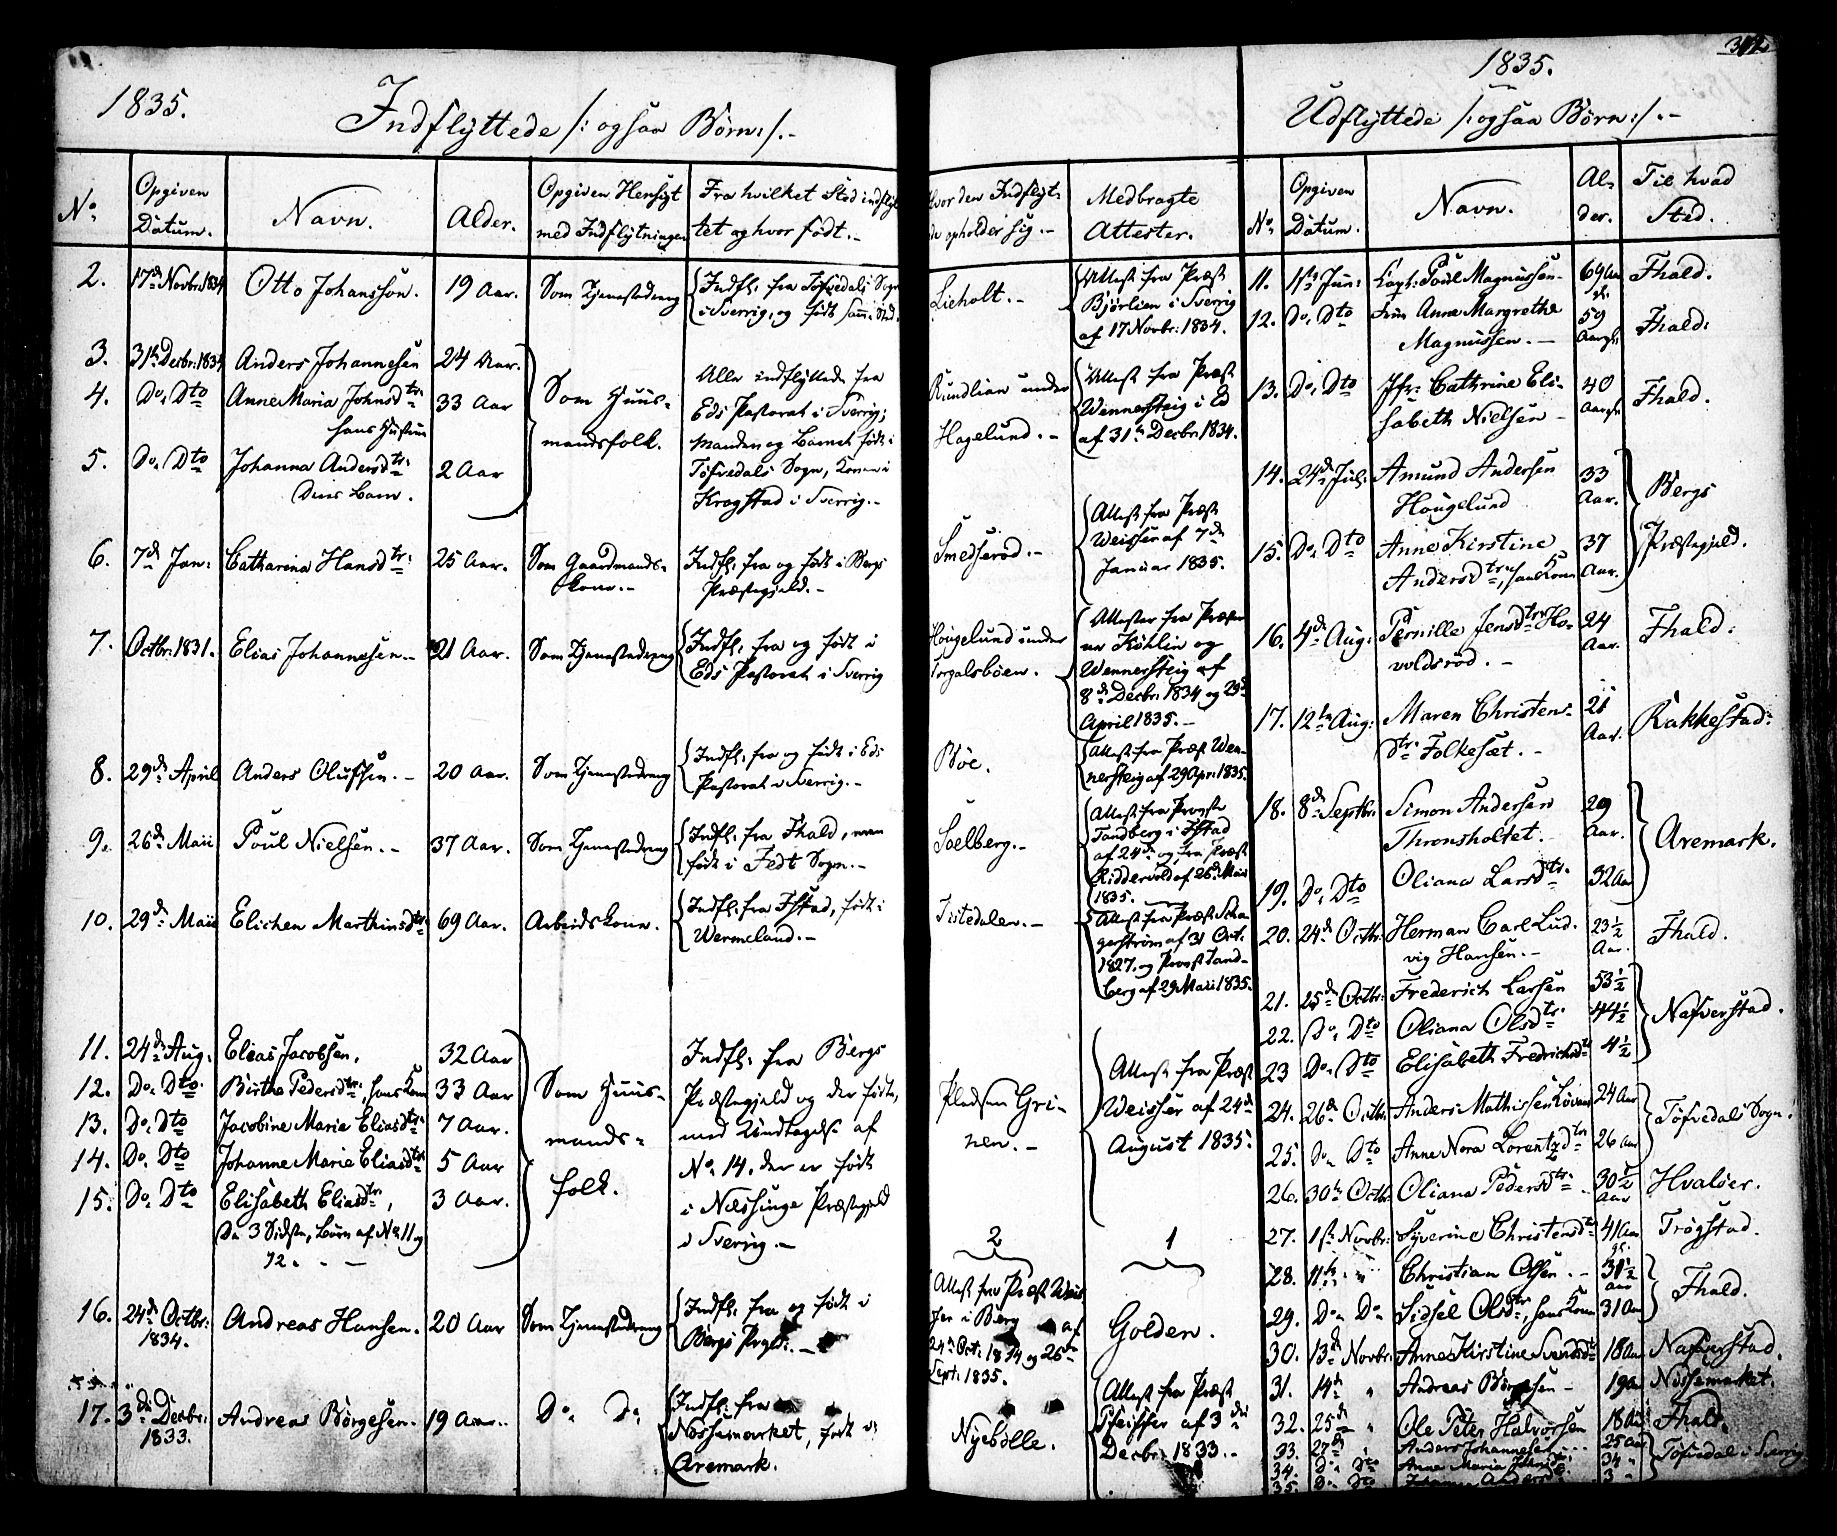 312
1835.
Indflyttede /: ogsaa Börn :/.-
No
Opgiven
Datum.
Navn.
Alder.
Opgiven Hensigt
med Indflytningen
Fra hvilket Sted indflyt
tet og hvor födt.-
Hvor den Indflyt-
de opholder sig.-
Medbragte
Attester.
2. 17de Novbr: 1834 Otto Johansson. 19 Aar. Som Tjenestedreng
Indfl: fra Töfvedals Sogn
i Sverrig, og födt samme Sted.
Lieholt.-
Attest fra Præst
Björlien i Sverrig
af 17 Novbr: 1834.
3. 31te Decbr: 1834 Anders Johannesen 24 Aar.
4. Do Dto Anne Maria Johnsdtr: 33 Aar
hans Hustru
5. Do Dto Johanna Andersdtr: 2 Aar
Deres Barn.
Som Huus-
mandsfolk.
Alle indflyttede fra
Eds Pastorat i Sverrig;
Manden og Barnet födt i
Töfvedals Sogn, Konen i
Krogstad i Sverrig.-
Rundlien under
Hagelund.-
Attest fra Præst
Wennersteig i Ed
af 31te Decbr: 1834.
6. 7de Jan: Catharina Hansdtr: 25 Aar. Som Gaardmands-
kone.-
Indfl: fra og födt i Bergs
Præstegjeld.-
Smedseröd.-
Attest fra Præst
Weisser af 7de
Januar 1835.
7. Octbr: 1831. Elias Johannesen.- 21 Aar. Som Tjenestedreng
Indfl: fra og födt i
Eds Pastorat i Sverrig
Hougelund under
Torgalsböen.
Attester fra Præster-
ne Köhlin og
Wennersteig af
8de Decbr: 1834 og 29de
April 1835.-
8. 29de April Anders Olufsen.- 20 Aar. Som Tjenestedreng
Indfl: fra og födt i Eds
Pastorat i Sverrig.-
Böe.
Attest fra Præst Wen-
nersteig af 29 Apr: 1835.
9. 26de Maii Poul Nielsen.- 37 Aar. Som Tjenestedreng
Indfl: fra Fhald, men
födt i Jedt Sogn.-
Solberg.-
Attest fra Provst
Tandberg i Fstad
af 24de og fra Præst
Riddervold af 26de Maii
1835.
10. 29de Maii Elichen Marthinsdtr: 69 Aar. Arbeidskone.
Indfl: fra Fstad, födt i
Wermeland.-
Tistedalen.-
Attest fra Præst
af 31 Oct:
1827. og Provst Tand-
berg af 29 Maii 1835.
11. 24de Aug: Elias Jacobsen. 32 Aar
12. Do Dto Birthe Pedersdtr:, hans Kone 33 Aar
13. Do Dto Jacobine Marie Eliasdtr: 7 Aar.
14. Do Dto Johanne Marie Eliasdtr: 5 Aar
15. Do Dto Elisabeth Eliasdtr:, 3 Aar.
De 3 Sidste, Börn af No 11 og
12.
Som Huus-
mands-
folk.
Indfl: fra Bergs
Præstegjeld og der födte,
med Undtagelse af
No 14. der er födt
i Næssinge Præstegjeld
i Sverrig.-
Pladsen Gri-
nen.-
Attest fra Præst
Weisser af 24de
August 1835.
2 1
16. 24de Octbr: Andreas Hansen. 20 Aar Som Tjenestedreng
1834.
Indfl: fra og födt i
Bergs Prgld:.-
Attest fra Præst Weis
ser i Berg af
24de Oct: 1834 og 26de
Sept: 1835.
Golden.
17. 3die Decbr: Andreas Börgesen. 19 Aar. Do Do
1833.
Indfl: fra
Nössemarket, födt i
Aremark.
Nyebölle.
Attest fra Præst
Pfeiffer af 3die
Decbr: 1833.-
1835.
Udflyttede /: ogsaa Börn :/.-
No
Opgiven
Datum.
Navn.
Al-
der.
Til hvad
Sted.
11. 1ste Jun: Capt: Poul Magnussen 69 Aar Fhald.
12. Do Dto Frue Anne Margrethe 59 Fhald:
Magnussen.- Aar
13. Do Dto Jfr: Cathrine Eli- 40 Fhald.
sabeth Nielsen Aar
14. 24de Jul: Amund Andersen 33
Hougelund Aar.
15. Do Dto Anne Kirstine 37
Andersdtr:, hans Kone Aar.
Bergs
Præstegjeld.
16. 4de Aug: Pernille Jensdtr: Ho- 24 Fhald:
voldsröd.- Aar.
17. 12te Aug: Maren Christens- 21 Rakkestad:
dtr: Folkesæt.- Aar.
18. 8de Septbr: Simon Andersen 29
Thronsholtet. Aar.
19. Do Dto Oliana Larsdtr: 32 Aar
Aremark.
20. 24de Octbr: Herman Carl Lud- 23½ Fhald.
vig Hansen.- Aar.
21. 25de Octbr: Frederich Larsen 53½
22. Do Dto Oliana Olsdtr: 44½
23 Do Dto Elisabeth Fredrichsdtr 4½
Nafverstad.
24. 26de Octbr: Anders Mathissen 24 Aar
25. Do Dto Anne Nora Lorentzdtr 26 Aar
Töfvedals Sogn.
26. 30te Octbr: Oliana Pedersdtr:. 30½ Hvalöer.
Aar
27. 1ste Novbr: Syverine Christensdtr 41 Aar Trögstad.
28. 11te " Christian Olsen.- 31½
Aar
29. Do Do Sidsel Olsdtr:, hans Kone 31 Aar
Fhald.
30. 13de Novbr: Anne Kirstine Svendsdtr 18 Aar Nafverstad.
31. 14de " Andreas Börgesen - 19 Aar Nössemarket.
32. 25de " Ole Peter Halvorsen 18 Aar Fhald.
33. 27de " Anders Johannesen 25 Aar
34. Do Dto Anne Maria Johnsdtr: 34 "
35. Do Dto Johanna Andersdtr 3 "
Töfvedal i Sverrig